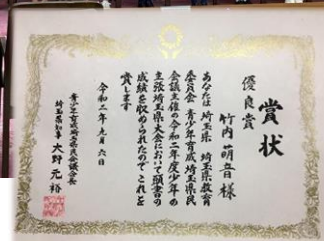 賞状
優良賞
竹内萌音様
あなたは埼玉県 埼玉県教育
委員会 青少年育成埼玉県民
会議主催の令和二年度少年の
主張埼玉県大会において頭書の
成績を収められたのでこれを
賞します
令和二年九月六日
青少年育成埼玉県民会議会長
埼玉県知事 大野元裕